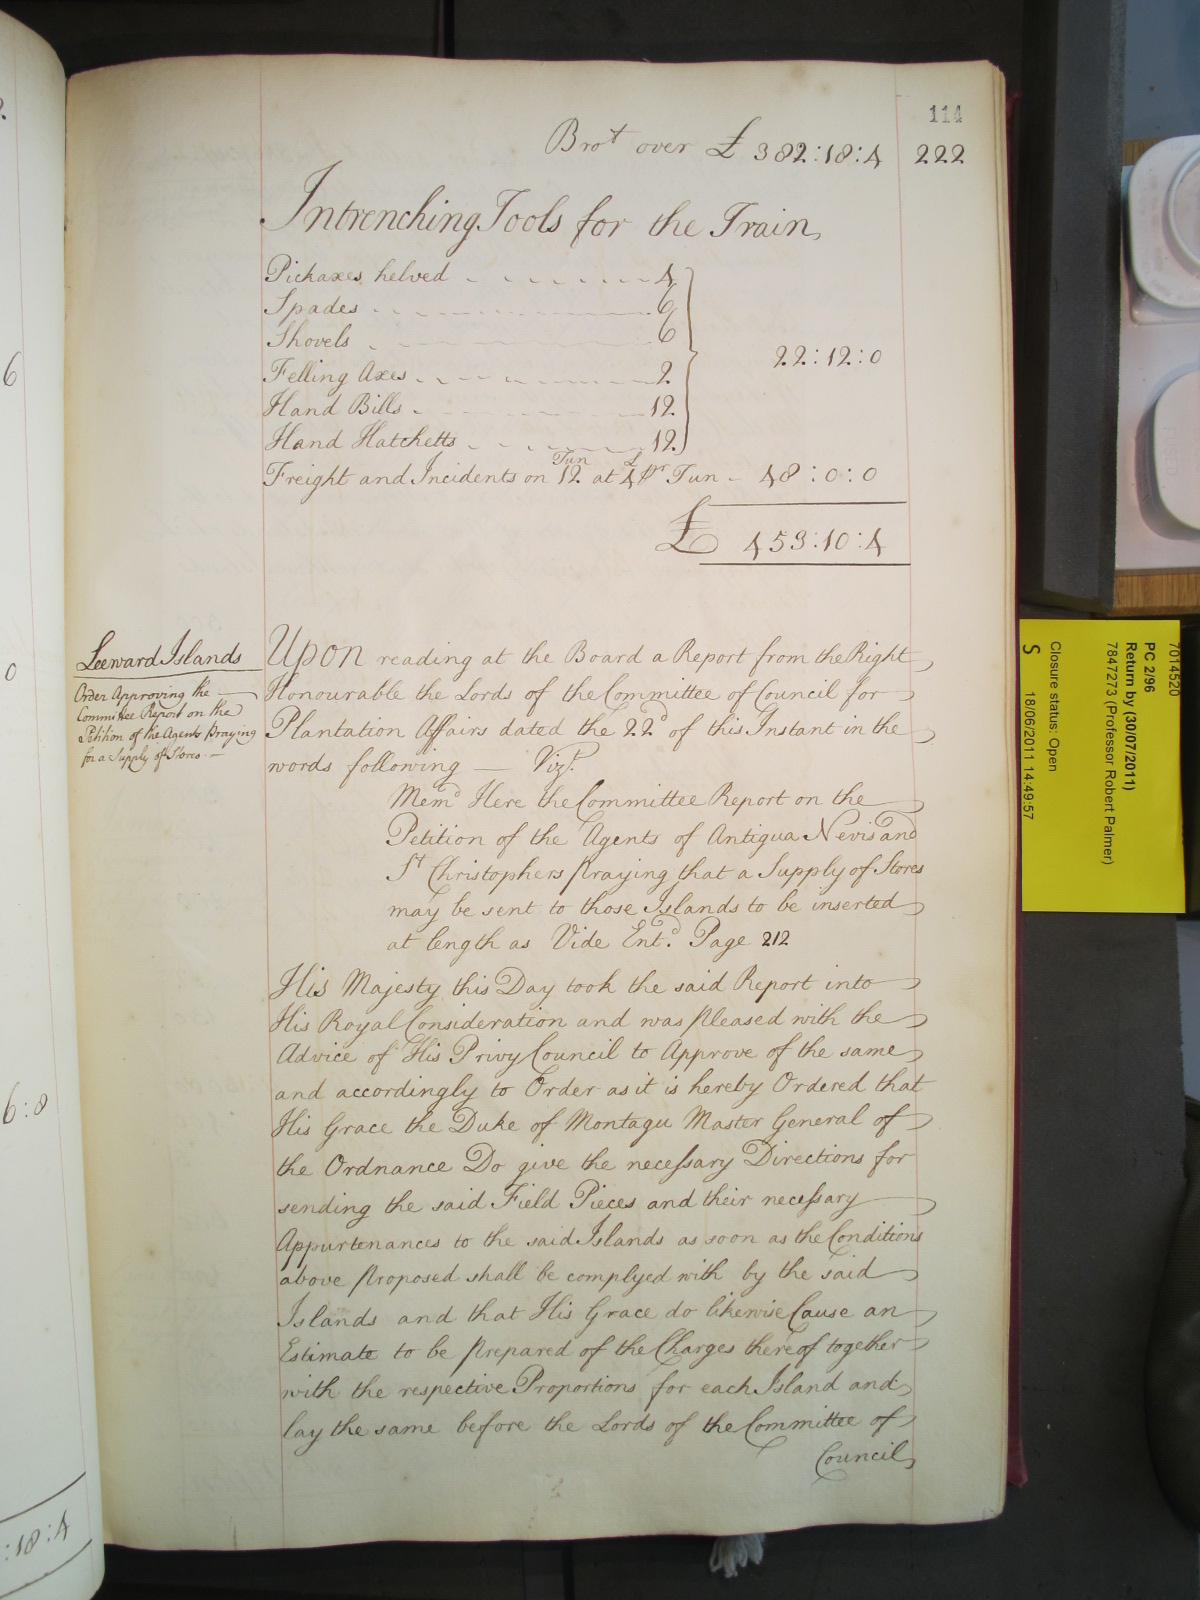 114
Bro^t over £ 382:18:4 222
Intrenching Tools for the Train
Pickaxes helved 4
Spades 6
Shovels 6
22:12:0
Felling Axes 2
Hand Bills 12
Hand Hatchetts 12
Freight and Incidents on 12 Tun at 4£ p^r Tun - 48:0:0
£ 453:10:4
Leeward Islands
Order Approving the
Committee Report on the
Petition of the Agents Praying
for a Supply of Stores
Upon reading at the Board a Report from the Right
Honourable the Lords of the Committee of Council for
Plantation Affairs dated the 22^d of this Instant in the
words following — Viz^t.
Mem^d Here the Committee Report on the
Petition of the Agents of Antigua Nevis and
S^t Christophers praying that a Supply of Stores
may be sent to those Islands to be inserted
at length as Vide Ent^d. Page 212
His Majesty this Day took the said Report into
His Royal Consideration and was pleased with the
Advice of His Privy Council to Approve of the same
and accordingly to Order as it is hereby Ordered that
His Grace the Duke of Montagu Master General of
the Ordnance Do give the necessary Directions for
sending the said Field Pieces and their necessary
Appurtenances to the said Islands as soon as the Conditions
above proposed shall be complyed with by the said
Islands and that His Grace do likewise Cause an
Estimate to be prepared of the Charges thereof together
with the respective Proportions for each Island and
lay the same before the Lords of the Committee of
Council
6
0
6:8
:18:4
7014520
PC 2/96
Return by (30/07/2011)
7847273 (Professor Robert Palmer)
Closure status: Open
S 18/06/2011 14:49:57